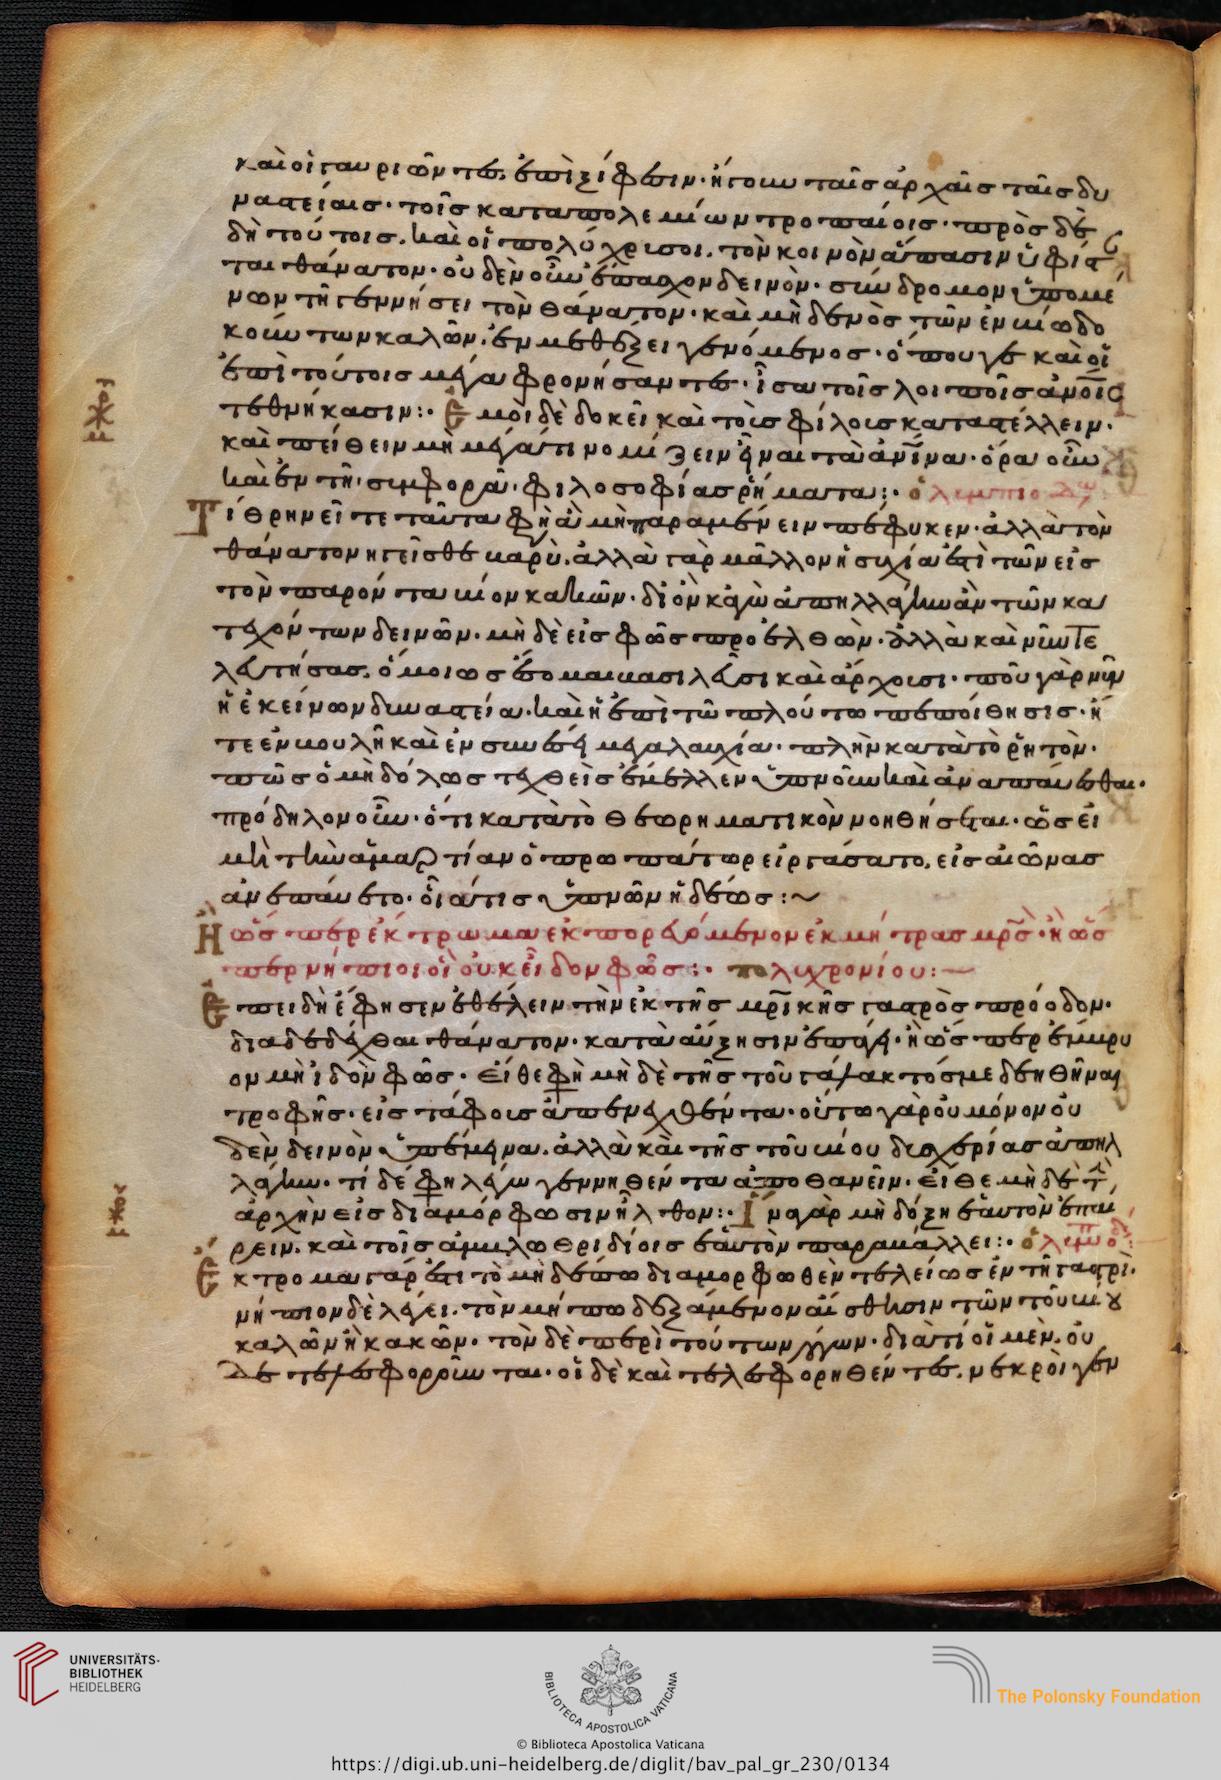 καὶ οἱ γαυριῶντες ἐπὶ ξίφεσιν· ἤγουν ταῖς ἀρχαῖς ταῖς δυ
ναστείαις· τοῖς κατὰ πολεμίων τροπαίοις· πρὸς δὲ
δὴ τούτοις, καὶ οἱ πολύχρυσοι, τὸν κοινὸν ἅπασιν
θάνατον· οὐδὲν οὖν ἔπασχον δεινὸν· σύνδρομον ὑπομε
νων τῇ γεννήσει τὸν θάνατον· καὶ μηδενὸς τῶν ἐν βίω δο
κούντων καλῶν, ἐν μεθέξει γενόμενος· ὅπουγε καὶ οἱ
ἐπὶ τούτοις μέγα φρονήσαντες· ἶσα τοῖς λοιποῖς ἀνοῖς
τεθνήκασιν:· Ἐμοὶ δὲ δοκεῖ καὶ τοῖς φίλοις καταστέλλειν·
καὶ πείθειν μὴ μέγα τι νομίζειν εἶναι τὰ ἀνινα· ὅρα οὖν
καὶ ἐν τῇ συμφορᾶ· φιλοσοφίας ῥήματα:·
Τί θρηνεῖτε ταῦτα φη ἃ μὴ παραμένειν πέφυκεν· ἀλλὰ τὸν
θάνατον ἡγεῖσθε βαρὺ, ἀλλὰ γὰρ μᾶλλον ἡσυχία ἐστὶ τῶν εἰς
τὸν παρόντα βίον κακῶν· δι ὃν κἀγὼ ἀπηλλάγην ἂν τῶν κα
τεχόντων δεινῶν· μὴ δὲ εἰς φῶς προελθὼν· ἀλλὰ καὶ νῦν τε
λευτήσας, ὁμοίως ἔσομαι βασιλεῦσι καὶ ἄρχουσι· ποῦ γὰρ νῦν
ἡ ἐκείνων δυναστεία, καὶ ἡ ἐπὶ τῶ πλούτω πεποίθησις· ἥ
τε ἐν βουλῆ καὶ ἐν συνέσει μεγαλαυχία· πλὴν κατὰ τὸ ῥητὸν·
πῶς ὁ μηδόλως τεχθεὶς ἔμελλεν ὑπνοῦν καὶ ἀναπαύεσθαι·
πρόδηλον οὖν· ὅτι κατὰ τὸ θεωρηματικὸν νοηθήσεται· ὡς εἰ
μὴ τὴν ἁμαρτίαν ὁ προπάτωρ εἰργάσατο, εἰς αἰῶνας
ἀνεπαύετο· οἷά τις ὑπνῶν ἡδέως:~
Ἢ ὥσπερ ἔκτρωμα ἐκπορευόμενον ἐκ μήτρας μρς· ἢ ὥς
περ νήπιοι οἳ οὐκ εἶδον φῶς:· πολυχρονίου:—
Ἐπειδὴ ἔφησεν ἐθέλειν τὴν ἐκ τῆς μρικῆς γαστρὸς πρόοδον·
διαδεδέχθαι θάνατον· κατὰ αὔξησιν ἐπάγει· ἢ ὥσπερ ἔμβρυ
ον μὴ ἰδὸν φῶς· Εἴθε φη μὴ δὲ τῆς τοῦ γάλακτός με δεηθῆναι
τροφῆς· εἰς τάφους ἀπενεχθέντα· οὕτω γὰρ οὐ μόνον οὐ
δὲν δεινὸν ὑπέμεινα, ἀλλὰ καὶ τῆς τοῦ βίου δυσχερίας ἀπηλ
λάγην· τί δέ φη λέγω γεννηθέντα ἀποθανεῖν· Εἴθε μὴ δὲ τ
ἀρχὴν εἰς διαμόρφωσιν ἦλθον:· Ἵνα γὰρ μὴ δόξη ἑαυτὸν ἐπαί
ρειν, καὶ τοῖς ἀμβλωθριδίοις ἑαυτὸν παραβάλλει:·
Ἔκτρομα γάρ ἐστι τὸ μὴ δέπω διαμορφωθὲν τελείως ἐν τῆ γαστρὶ·
νήπιον δὲ λέγει, τὸν μήπω δεξάμενον αἴσθησιν τῶν τοῦ βίου
καλῶν ἢ κακῶν· τὸν δὲ περὶ τούτων λόγων· διὰ τί οἱ μὲν, οὐ
δὲ τελεσφοροῦνται· οἱ δὲ καὶ τελεσφορηθέντες, νεκροὶ γεν
UNIVERSITÄTS-
BIBLIOTHEK
HEIDELBERG
BIBLIOTECA APOSTOLICA VATICANA
The Polonsky Foundation
© Biblioteca Apostolica Vaticana
https://digi.ub.uni-heidelberg.de/diglit/bav_pal_gr_230/0134